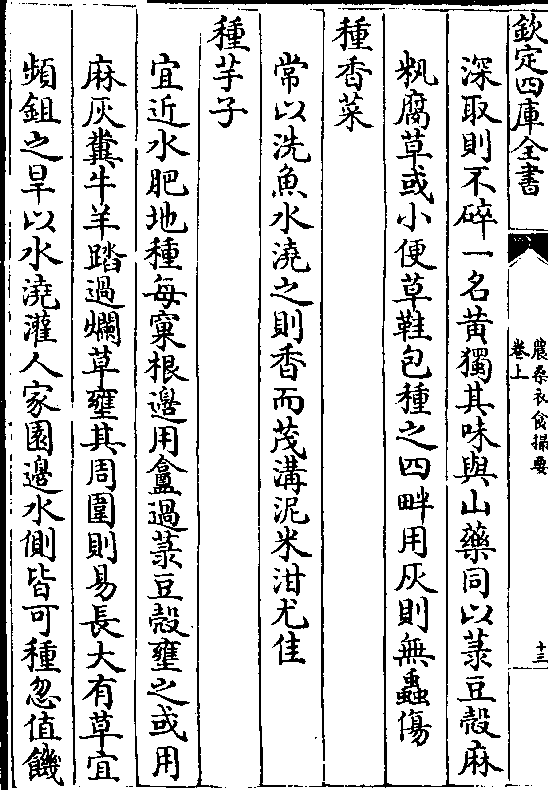 欽定四庫全書
農桑衣食撮要
卷上
十三
深取則不碎一名黄獨其味與山藥同以菉豆殻麻
籸腐草或小便草鞋包種之四畔用灰則無蟲傷
種香菜
常以洗魚水澆之則香而茂溝泥米泔尤佳
種芋子
宜近水肥地種每窠根邊用盦過菉豆殻壅之或用
麻灰糞牛羊踏過爛草壅其周圍則易長大有草宜
頻鉏之旱以水澆灌人家園邊水側皆可種忽值饑